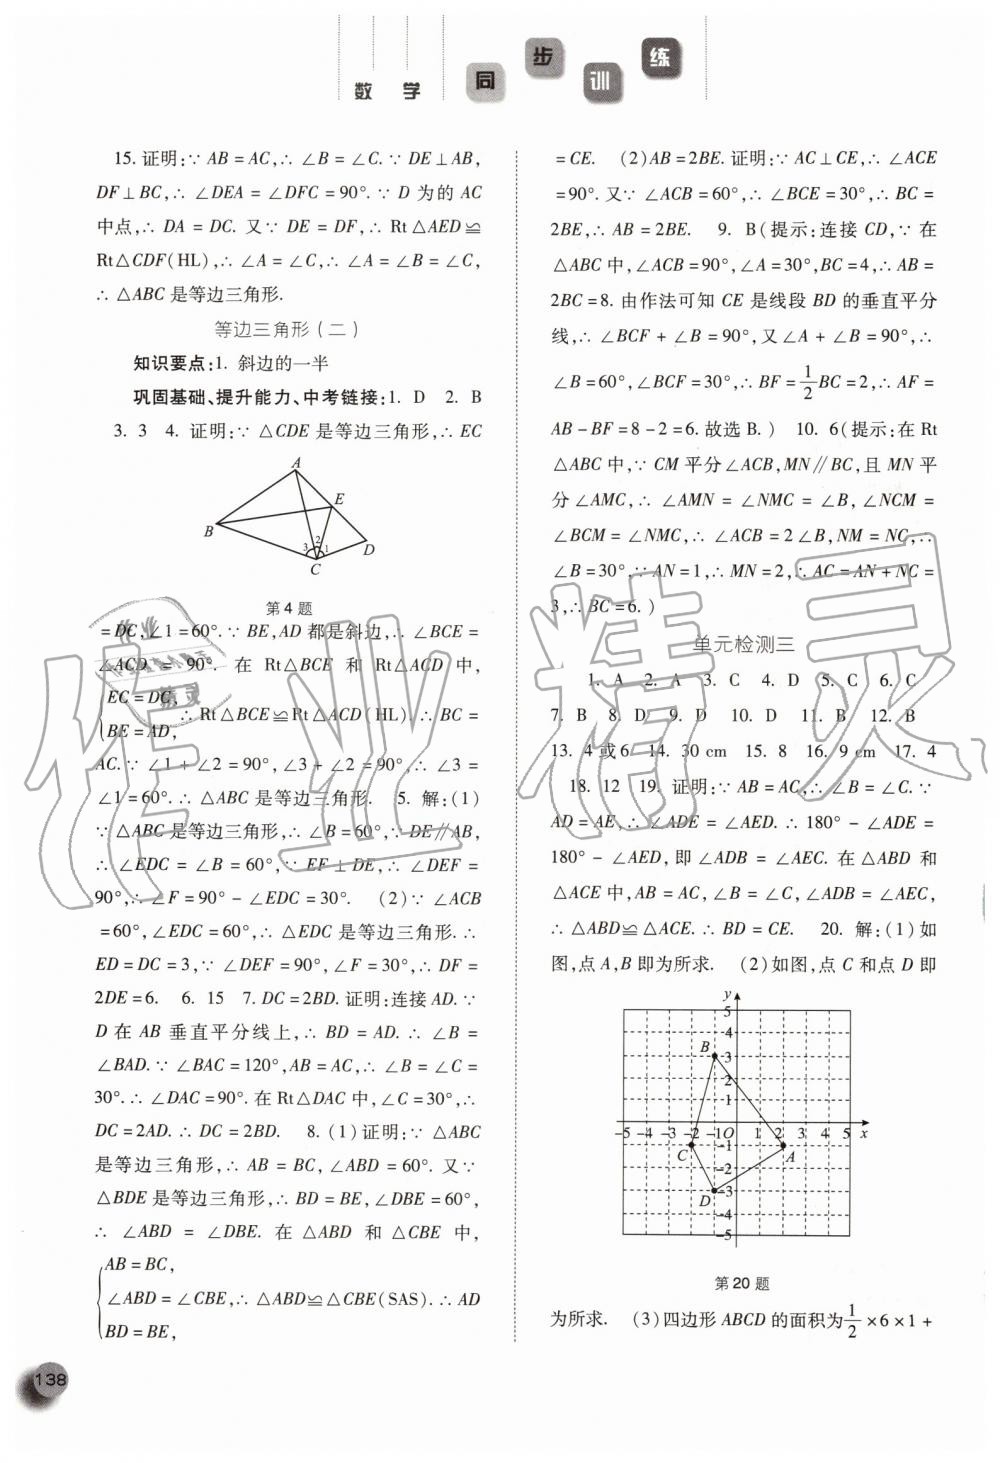 数 学 同 步 训 练
15. 证明:∵ AB = AC,∴ ∠B = ∠C. ∵ DE⊥AB,
DF⊥BC,∴ ∠DEA = ∠DFC = 90°. ∵ D 为的 AC
中点,∴ DA = DC. 又∵ DE = DF,∴ Rt△AED≌
Rt△CDF(HL),∴ ∠A = ∠C,∴ ∠A = ∠B = ∠C,
∴ △ABC 是等边三角形.
等边三角形(二)
知识要点:1. 斜边的一半
巩固基础、提升能力、中考链接:1. D 2. B
3. 3 4. 证明:∵ △CDE 是等边三角形,∴ EC
A
E
B
3 2 1
D
C
第 4 题
= DC,∠1 = 60°. ∵ BE,AD 都是斜边,∴ ∠BCE =
∠ACD = 90°. 在 Rt△BCE 和 Rt△ACD 中,
{EC = DC,
BE = AD,
∴ Rt△BCE≌Rt△ACD(HL). ∴ BC =
AC. ∵ ∠1 + ∠2 = 90°,∠3 + ∠2 = 90°,∴ ∠3 =
∠1 = 60°. ∴ △ABC 是等边三角形. 5. 解:(1)
∵ △ABC 是等边三角形,∴ ∠B = 60°,∵ DE∥AB,
∴ ∠EDC = ∠B = 60°,∵ EF⊥DE,∴ ∠DEF =
90°,∴ ∠F = 90° - ∠EDC = 30°. (2)∵ ∠ACB
= 60°,∠EDC = 60°,∴ △EDC 是等边三角形. ∴
ED = DC = 3,∵ ∠DEF = 90°,∠F = 30°,∴ DF =
2DE = 6. 6. 15 7. DC = 2BD. 证明:连接 AD. ∵
D 在 AB 垂直平分线上,∴ BD = AD. ∴ ∠B =
∠BAD. ∵ ∠BAC = 120°,AB = AC,∴ ∠B = ∠C =
30°. ∴ ∠DAC = 90°. 在 Rt△DAC 中,∠C = 30°,∴
DC = 2AD. ∴ DC = 2BD. 8. (1)证明:∵ △ABC
是等边三角形,∴ AB = BC,∠ABD = 60°. 又∵
△BDE 是等边三角形,∴ BD = BE,∠DBE = 60°,
∴ ∠ABD = ∠DBE. 在 △ABD 和 △CBE 中,
{AB = BC,
∠ABD = ∠CBE,∴ △ABD≌△CBE(SAS). ∴ AD
BD = BE,
= CE. (2)AB = 2BE. 证明:∵ AC⊥CE,∴ ∠ACE
= 90°. 又∵ ∠ACB = 60°,∴ ∠BCE = 30°,∴ BC =
2BE,∴ AB = 2BE. 9. B(提示:连接 CD,∵ 在
△ABC 中,∠ACB = 90°,∠A = 30°,BC = 4,∴ AB =
2BC = 8. 由作法可知 CE 是线段 BD 的垂直平分
线,∴ ∠BCF + ∠B = 90°,又∠A + ∠B = 90°,∴
∠B = 60°,∠BCF = 30°,∴ BF = 1/2 BC = 2,∴ AF =
AB - BF = 8 - 2 = 6. 故选 B.) 10. 6(提示:在 Rt
△ABC 中,∵ CM 平分∠ACB,MN∥BC,且 MN 平
分∠AMC,∴ ∠AMN = ∠NMC = ∠B,∠NCM =
∠BCM = ∠NMC,∴ ∠ACB = 2∠B,NM = NC,∴
∠B = 30°,∵ AN = 1,∴ MN = 2,∴ AC = AN + NC =
3,∴ BC = 6.)
单元检测三
1. A 2. A 3. C 4. D 5. C 6. C
7. B 8. D 9. D 10. D 11. B 12. B
13. 4 或 6 14. 30 cm 15. 8 16. 9 cm 17. 4
18. 12 19. 证明:∵ AB = AC,∴ ∠B = ∠C. ∵
AD = AE,∴ ∠ADE = ∠AED. ∴ 180° - ∠ADE =
180° - ∠AED,即∠ADB = ∠AEC. 在△ABD 和
△ACE 中,AB = AC,∠B = ∠C,∠ADB = ∠AEC,
∴ △ABD≌△ACE. ∴ BD = CE. 20. 解:(1)如
图,点 A,B 即为所求. (2)如图,点 C 和点 D 即
y
5
4
B 3
2
1
-5 -4 -3 -2 -1 O 1 2 3 4 5 x
C -1 A
-2
D -3
-4
-5
第 20 题
为所求. (3)四边形 ABCD 的面积为 1/2 × 6 × 1 +
138
作业精灵